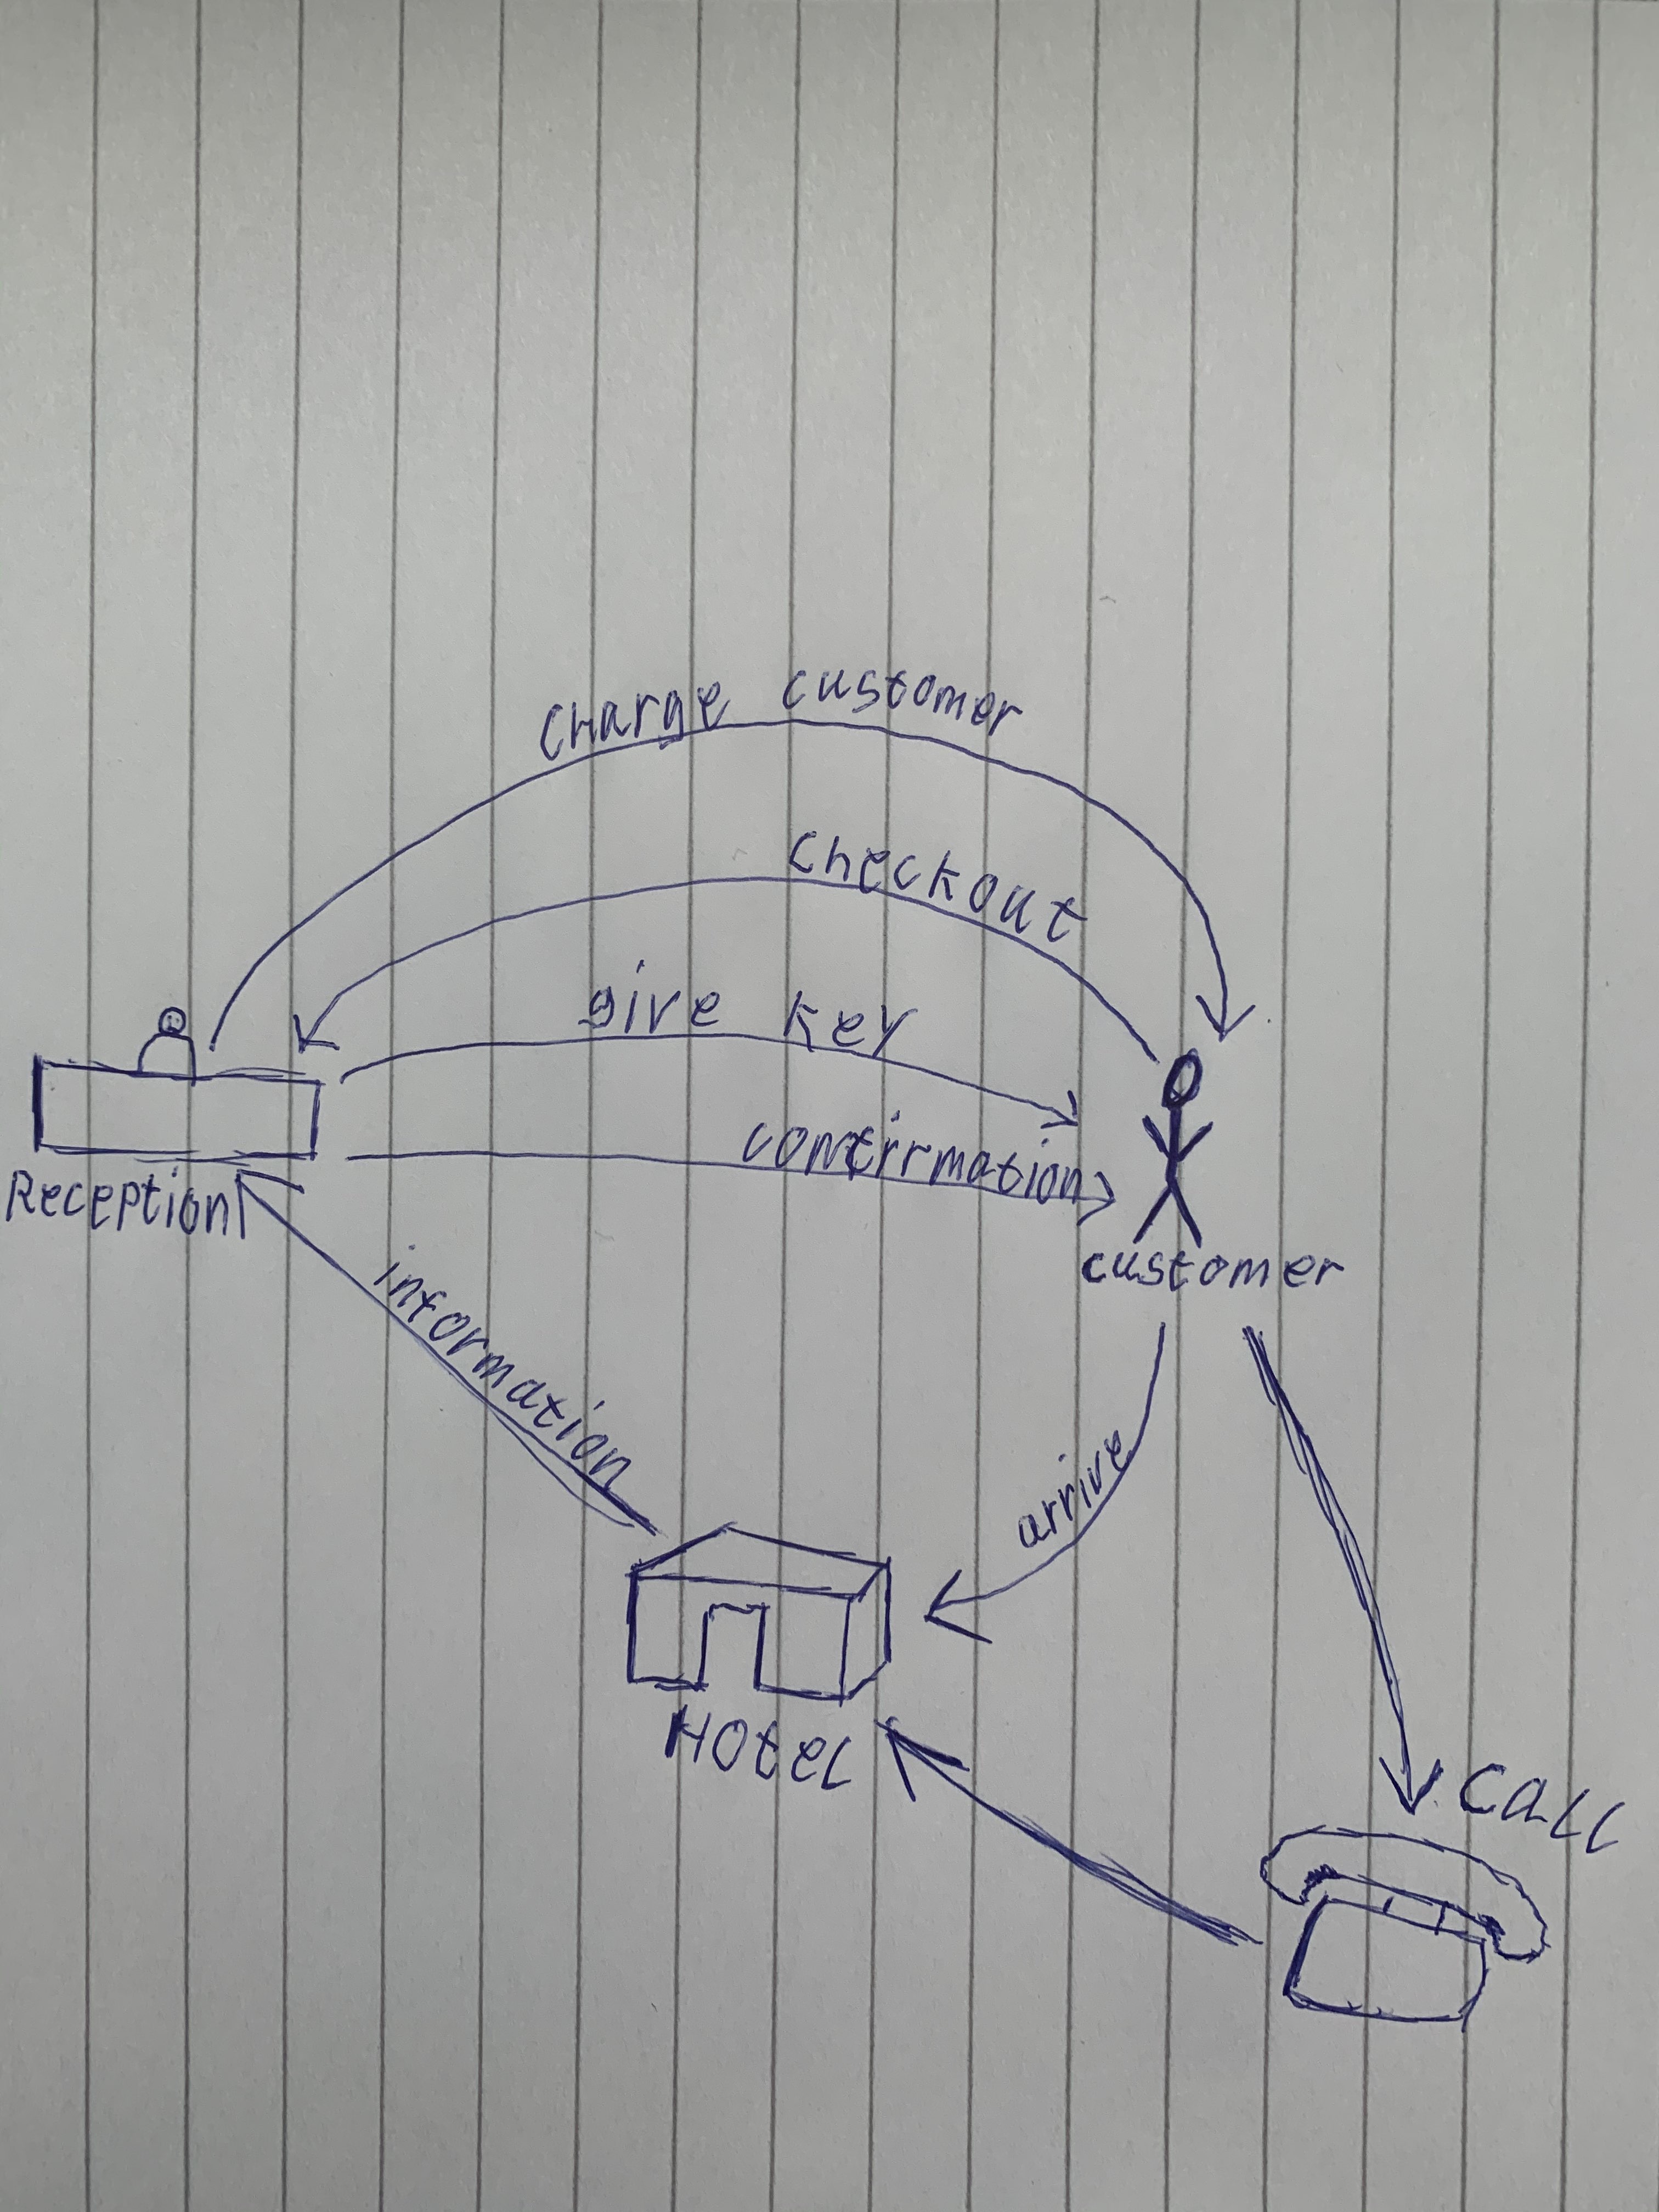 charge customer
checkout
give key
comfirmation
Reception
customer
information
arrive
Hotel
call